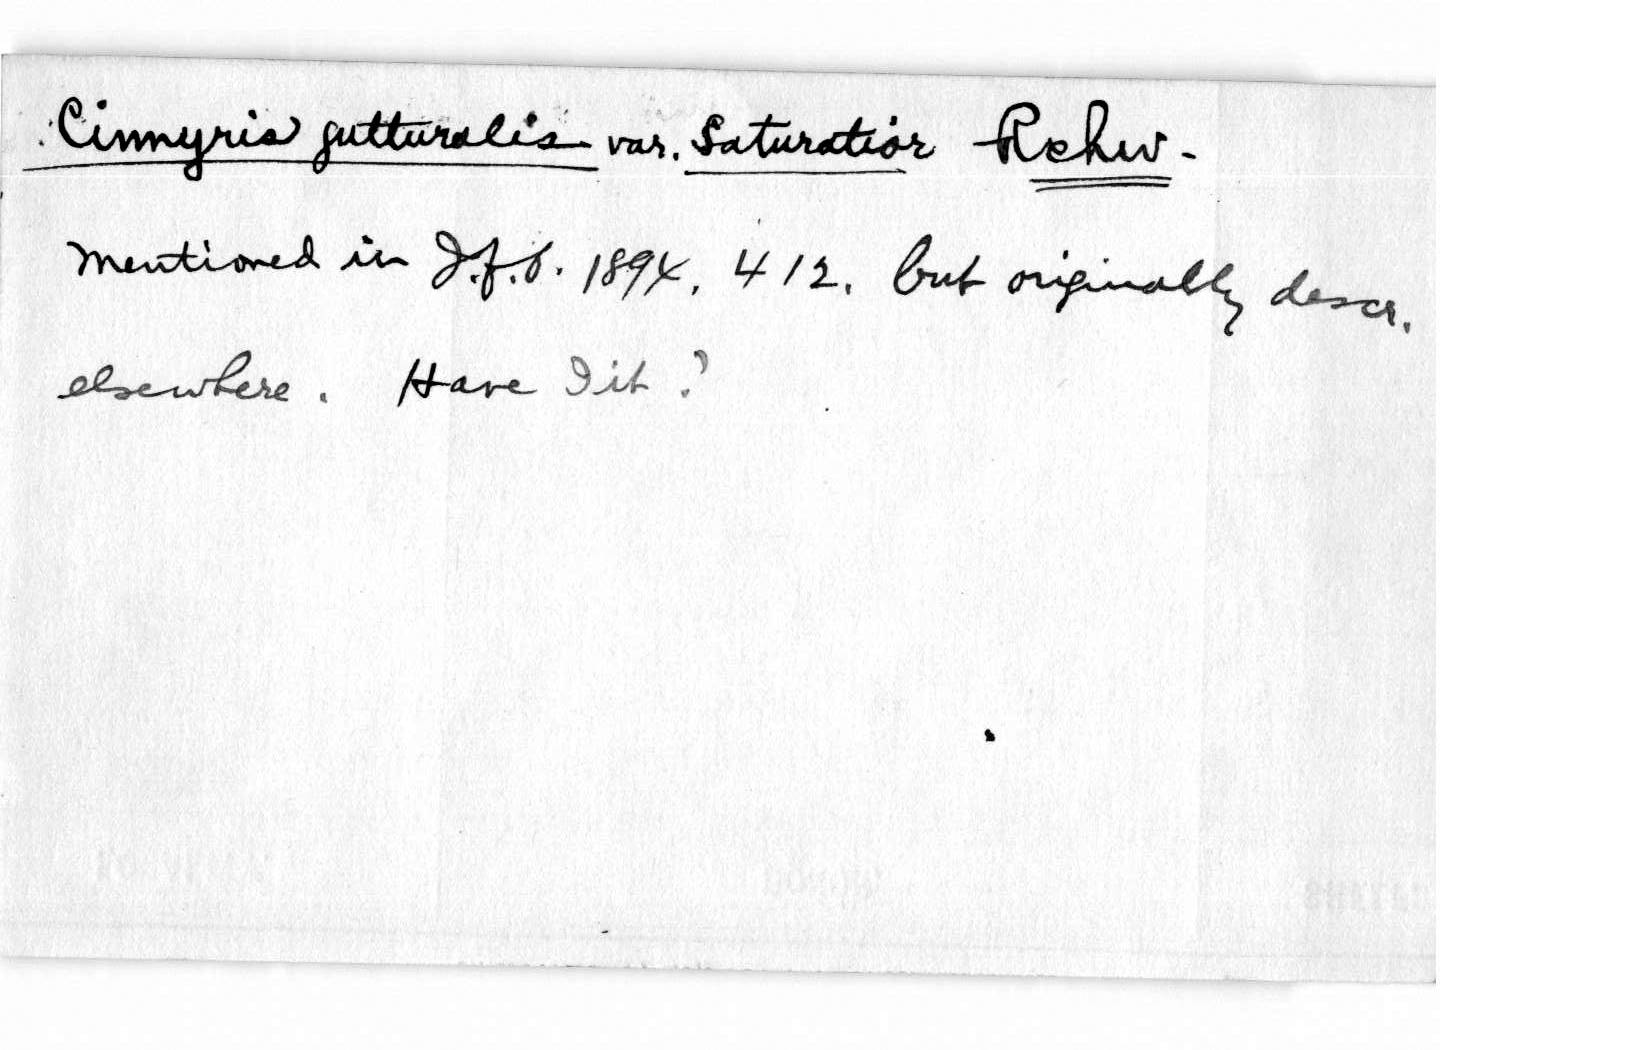 Cinnyris gutturalis var. saturatior Rchw.
Mentioned in J.f.O. 1894, 412. but originally descr.
elsewhere. Have I it?